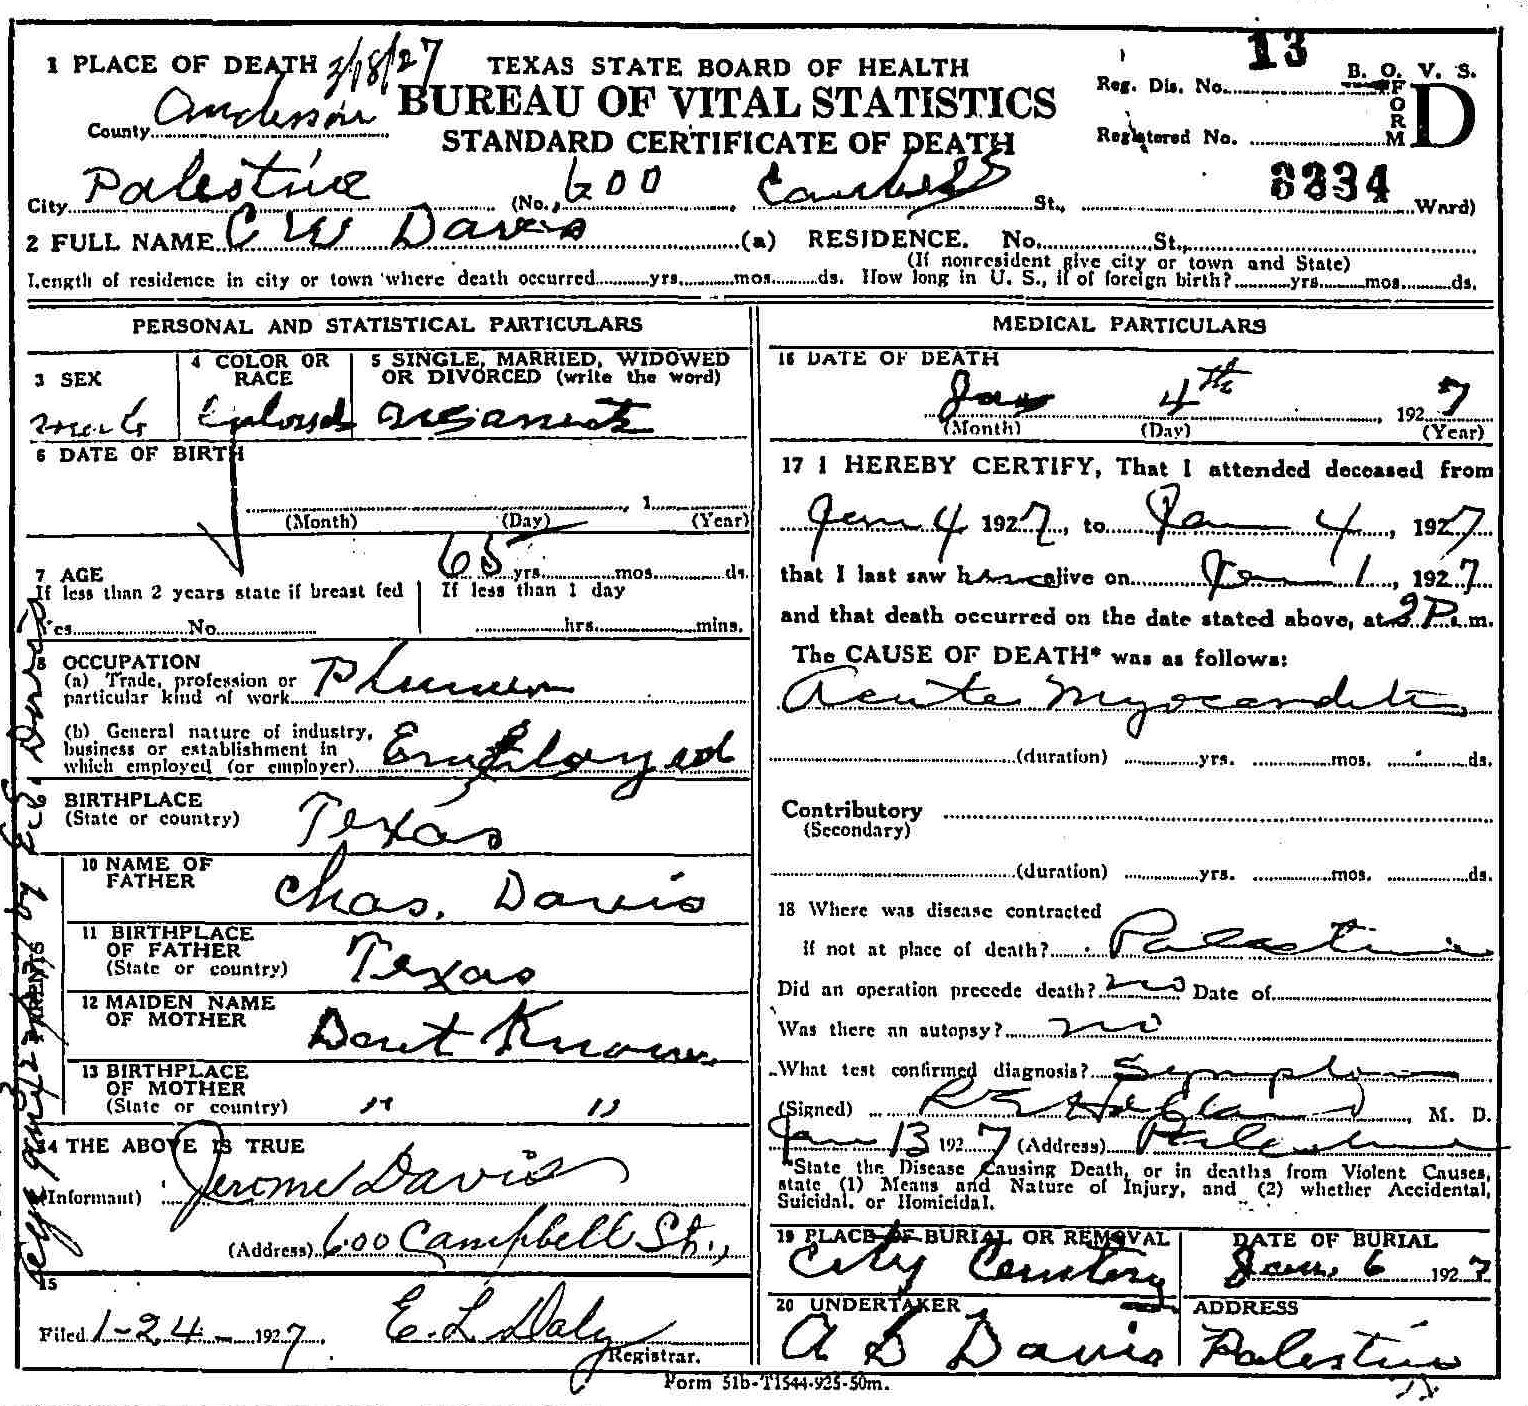 1 PLACE OF DEATH 3/18/27
TEXAS STATE BOARD OF HEALTH
BUREAU OF VITAL STATISTICS
STANDARD CERTIFICATE OF DEATH
Reg. Dis. No. 13
Registered No.
B. O. V. S.
FORM D
County Anderson
City Palestine (No. 600 St., 3334 Ward)
2 FULL NAME C W Davis (a) RESIDENCE. No. St.,
(If nonresident give city or town and State)
Length of residence in city or town where death occurred yrs. mos. ds. How long in U. S., if of foreign birth? yrs. mos. ds.
PERSONAL AND STATISTICAL PARTICULARS
3 SEX
4 COLOR OR RACE
Colored
5 SINGLE, MARRIED, WIDOWED OR DIVORCED (write the word)
6 DATE OF BIRTH
, 1
(Month) (Day) (Year)
7 AGE 65 yrs. mos. ds.
If less than 2 years state if breast fed
Yes No
If less than 1 day
hrs. mins.
8 OCCUPATION
(a) Trade, profession or
particular kind of work
(b) General nature of industry,
business or establishment in
which employed (or employer) Employed
9 BIRTHPLACE
(State or country) Texas
PARENTS
10 NAME OF
FATHER Chas. Davis
11 BIRTHPLACE
OF FATHER
(State or country) Texas
12 MAIDEN NAME
OF MOTHER Dont Know
13 BIRTHPLACE
OF MOTHER
(State or country) " "
14 THE ABOVE IS TRUE
(Informant) Jerome Davis
(Address) 600 Campbell St.,
15
Filed 1-24- 1927. E. L. Daly
Registrar.
MEDICAL PARTICULARS
16 DATE OF DEATH
Jan 4th, 1927
(Month) (Day) (Year)
17 I HEREBY CERTIFY, That I attended deceased from
Jan 4 1927, to Jan 4, 1927
that I last saw h alive on Jan 1, 1927
and that death occurred on the date stated above, at 2 P. m.
The CAUSE OF DEATH* was as follows:
Acute Myocarditis
(duration) yrs. mos. ds.
Contributory
(Secondary)
(duration) yrs. mos. ds.
18 Where was disease contracted
if not at place of death? Palestine
Did an operation precede death? no Date of
Was there an autopsy? no
What test confirmed diagnosis? Symptoms
(Signed) R E , M. D.
Jan 13 1927 (Address) Palestine
*State the Disease Causing Death, or in deaths from Violent Causes,
state (1) Means and Nature of Injury, and (2) whether Accidental,
Suicidal, or Homicidal.
19 PLACE OF BURIAL OR REMOVAL
City Cemetery
DATE OF BURIAL
Jan. 6 1927
20 UNDERTAKER
A D Davis
ADDRESS
Palestine
Form 51b-T1544-925-50m.